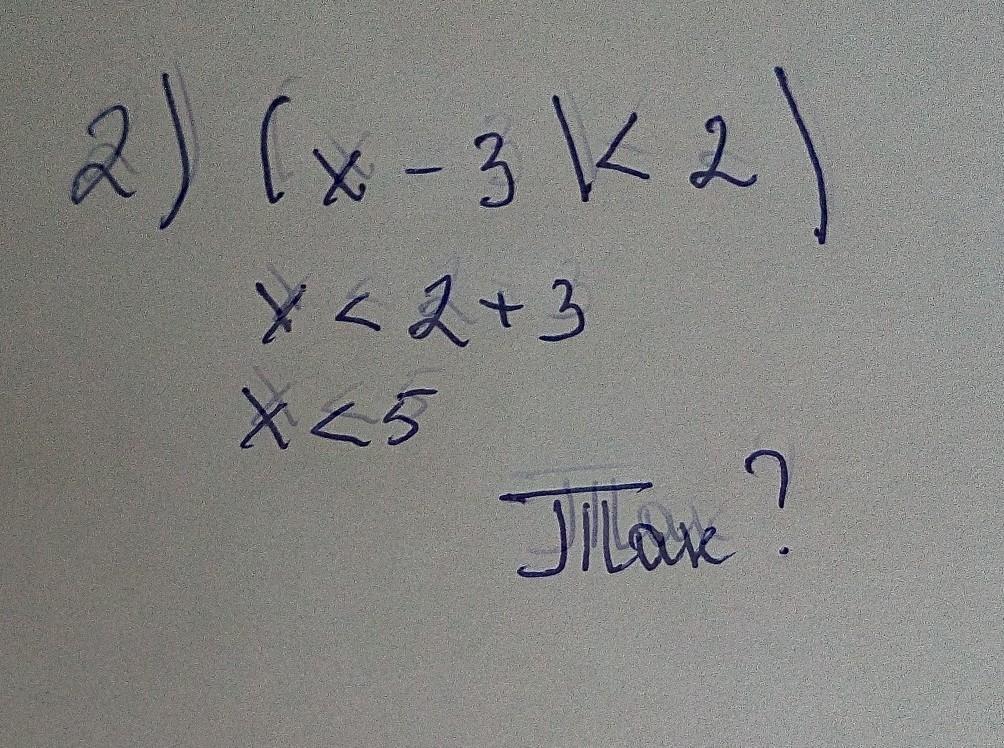 2) (x - 3 \< 2)
x < 2 + 3
x < 5
Так?